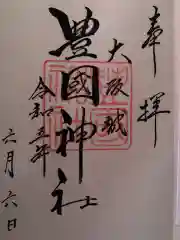 奉拝
大阪城
豊國神社
令和五年
六月六日